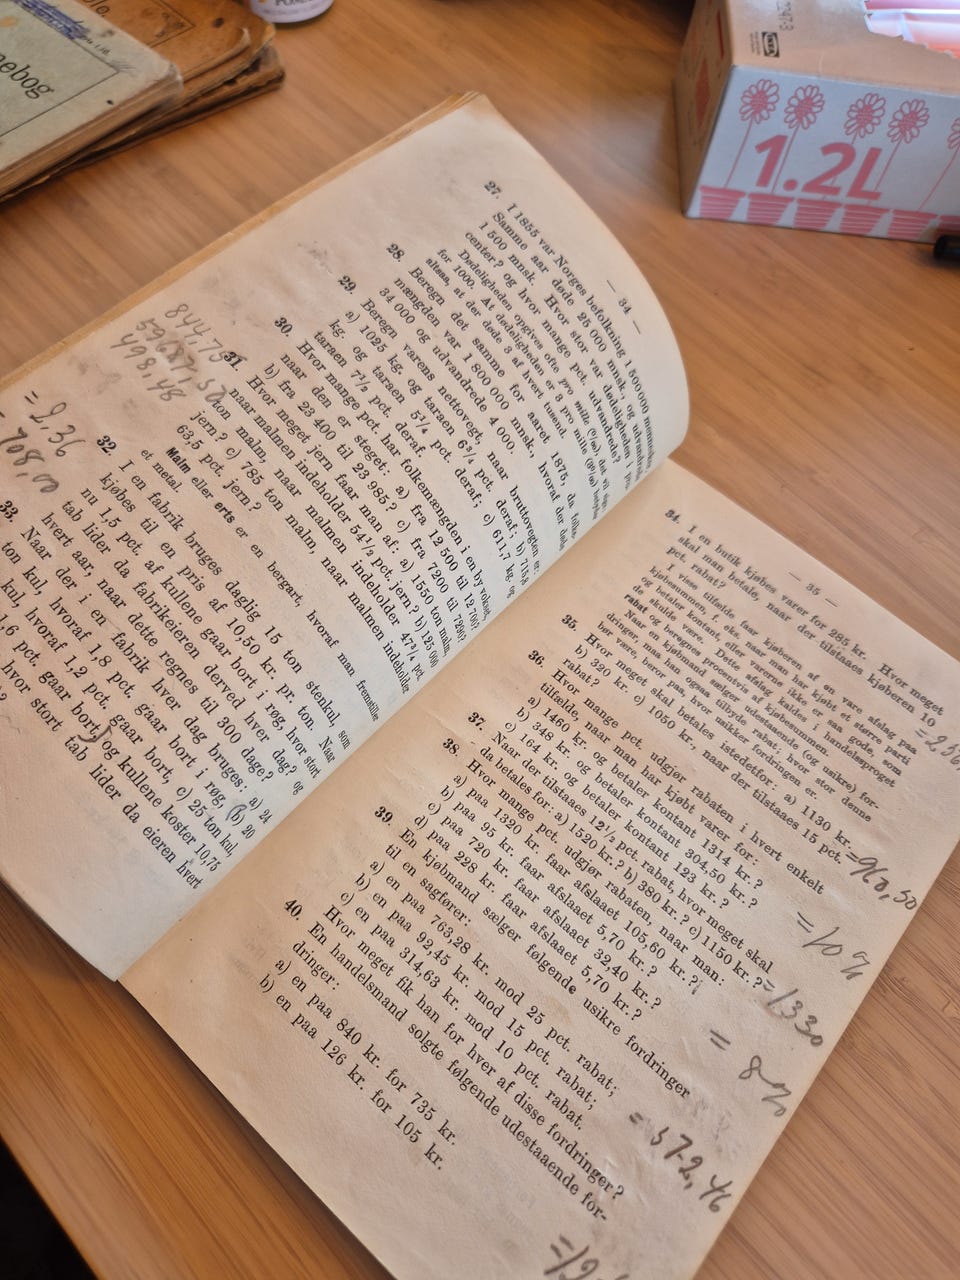 nebog
1.2L
IKEA
— 34 —
27. I 1855 var Norges befolkning 1 500 000 mennesker.
Samme aar døde 25 000 mnsk., og udvandrede
1 500 mnsk. Hvor stor var dødeligheden i pro-
center? og hvor mange pct. udvandrede?
Dødeligheden opgives ofte pro mille (‰), det vil
for 1000. At dødeligheden er 3 pro mille (3 ‰) betyder
altsaa, at der døde 3 af hvert tusend.
28. Beregn det samme for aaret 1875, da folke-
mængden var 1 800 000 mnsk., hvoraf der døde
34 000 og udvandrede 4 000.
29. Beregn varens nettovegt, naar bruttovegten er:
a) 1025 kg. og taraen 6¾ pct. deraf; b) 715,8
kg. og taraen 5¼ pct. deraf; c) 611,7 kg. og
taraen 7½ pct. deraf.
30. Hvor mange pct. har folkemængden i en by vokset,
naar den er steget: a) fra 12 500 til 12 700?
b) fra 23 400 til 23 985? c) fra 7200 til 7290?
31. Hvor meget jern faar man af: a) 1550 ton malm,
naar malmen indeholder 54½ pct. jern? b) 125 000
ton malm, naar malmen indeholder 47¾ pct.
jern? c) 785 ton malm, naar malmen indeholder
63,5 pct. jern?
Malm eller erts er en bergart, hvoraf man fremstiller
et metal.
32. I en fabrik bruges daglig 15 ton stenkul, som
kjøbes til en pris af 10,50 kr. pr. ton. Naar
nu 1,5 pct. af kullene gaar bort i røg, hvor stort
tab lider da fabrikeieren derved hver dag? og
hvert aar, naar dette regnes til 300 dage?
33. Naar der i en fabrik hver dag bruges: a) 24
ton kul, hvoraf 1,8 pct. gaar bort i røg, (b) 20
kul, hvoraf 1,2 pct. gaar bort, c) 25 ton kul,
1,6 pct. gaar bort, og kullene koster 10,75
hvor stort tab lider da eieren hvert
844,75
498,48
= 2,36
708,00
— 35 —
34. I en butik kjøbes varer for 265 kr. Hvor meget
skal man betale, naar der tilstaaes kjøberen 10
pct. rabat?
I visse tilfælde faar kjøberen af en vare afslag paa
kjøbesummen, f. eks. naar man har kjøbt et større parti
og betaler kontant, eller varerne ikke er saa gode, som
de skulde være. Dette afslag kaldes i handelssproget
rabat og beregnes procentvis af kjøbesummen.
Naar en kjøbmand sælger udestaaende (og usikre) for-
dringer, maa han ogsaa tilbyde rabat; hvor stor denne
bør være, beror paa, hvor usikker fordringen er.
35. Hvor meget skal betales istedetfor: a) 1130 kr.
b) 320 kr. c) 1050 kr., naar der tilstaaes 15 pct.
rabat?
= 960,50
36. Hvor mange pct. udgjør rabaten i hvert enkelt
tilfælde, naar man har kjøbt varer for:
a) 1460 kr. og betaler kontant 1314 kr.?
b) 348 kr. og betaler kontant 304,50 kr.?
c) 164 kr. og betaler kontant 123 kr.?
= 10%
37. Naar der tilstaaes 12½ pct. rabat, hvor meget skal
da betales for: a) 1520 kr.? b) 380 kr.? c) 1150 kr.?
= 1330
38. Hvor mange pct. udgjør rabaten, naar man:
a) paa 1320 kr. faar afslaaet 105,60 kr.?
b) paa 95 kr. faar afslaaet 5,70 kr.?
c) paa 720 kr. faar afslaaet 32,40 kr.?
d) paa 228 kr. faar afslaaet 5,70 kr.?
= 8%
39. En kjøbmand sælger følgende usikre fordringer
til en sagfører:
a) en paa 763,28 kr. mod 25 pct. rabat;
b) en paa 92,45 kr. mod 15 pct. rabat;
c) en paa 314,63 kr. mod 10 pct. rabat.
Hvor meget fik han for hver af disse fordringer?
= 572,46
40. En handelsmand solgte følgende udestaaende for-
dringer:
a) en paa 840 kr. for 735 kr.
b) en paa 126 kr. for 105 kr.